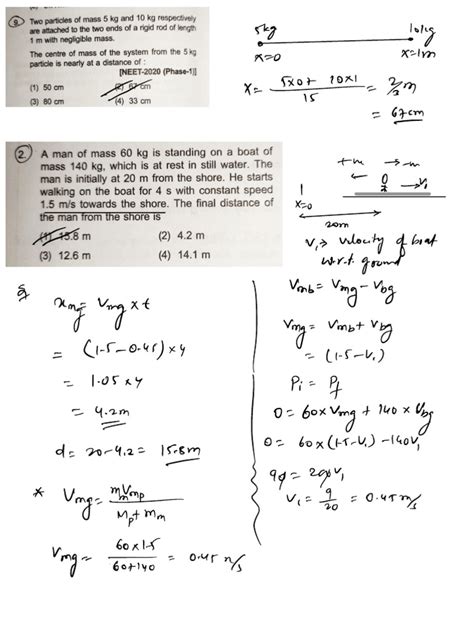 9. Two particles of mass 5 kg and 10 kg respectively
are attached to the two ends of a rigid rod of length
1 m with negligible mass.
The centre of mass of the system from the 5 kg
particle is nearly at a distance of :
[NEET-2020 (Phase-1)]
(1) 50 cm (2) 67 cm
(3) 80 cm (4) 33 cm
5kg 10kg
x=0 x=1m
x = (5×0+ 10×1)/15 = 2/3 m
= 67cm
2. A man of mass 60 kg is standing on a boat of
mass 140 kg, which is at rest in still water. The
man is initially at 20 m from the shore. He starts
walking on the boat for 4 s with constant speed
1.5 m/s towards the shore. The final distance of
the man from the shore is
(1) 15.8 m (2) 4.2 m
(3) 12.6 m (4) 14.1 m
x=0
→V₁
20m
V₁ → velocity of boat
w.r.t. ground
Vmb = Vmg − Vbg
Vmg = Vmb + Vbg
= (1.5−V₁)
Pi = Pf
0 = 60×Vmg + 140 × Vbg
0 = 60×(1.5−V₁) −140V₁
90 = 200V₁
V₁ = 9/20 = 0.45 m/s
xmg = Vmg × t
= (1.5−0.45) × 4
= 1.05 × 4
= 4.2m
d = 20−4.2 = 15.8m